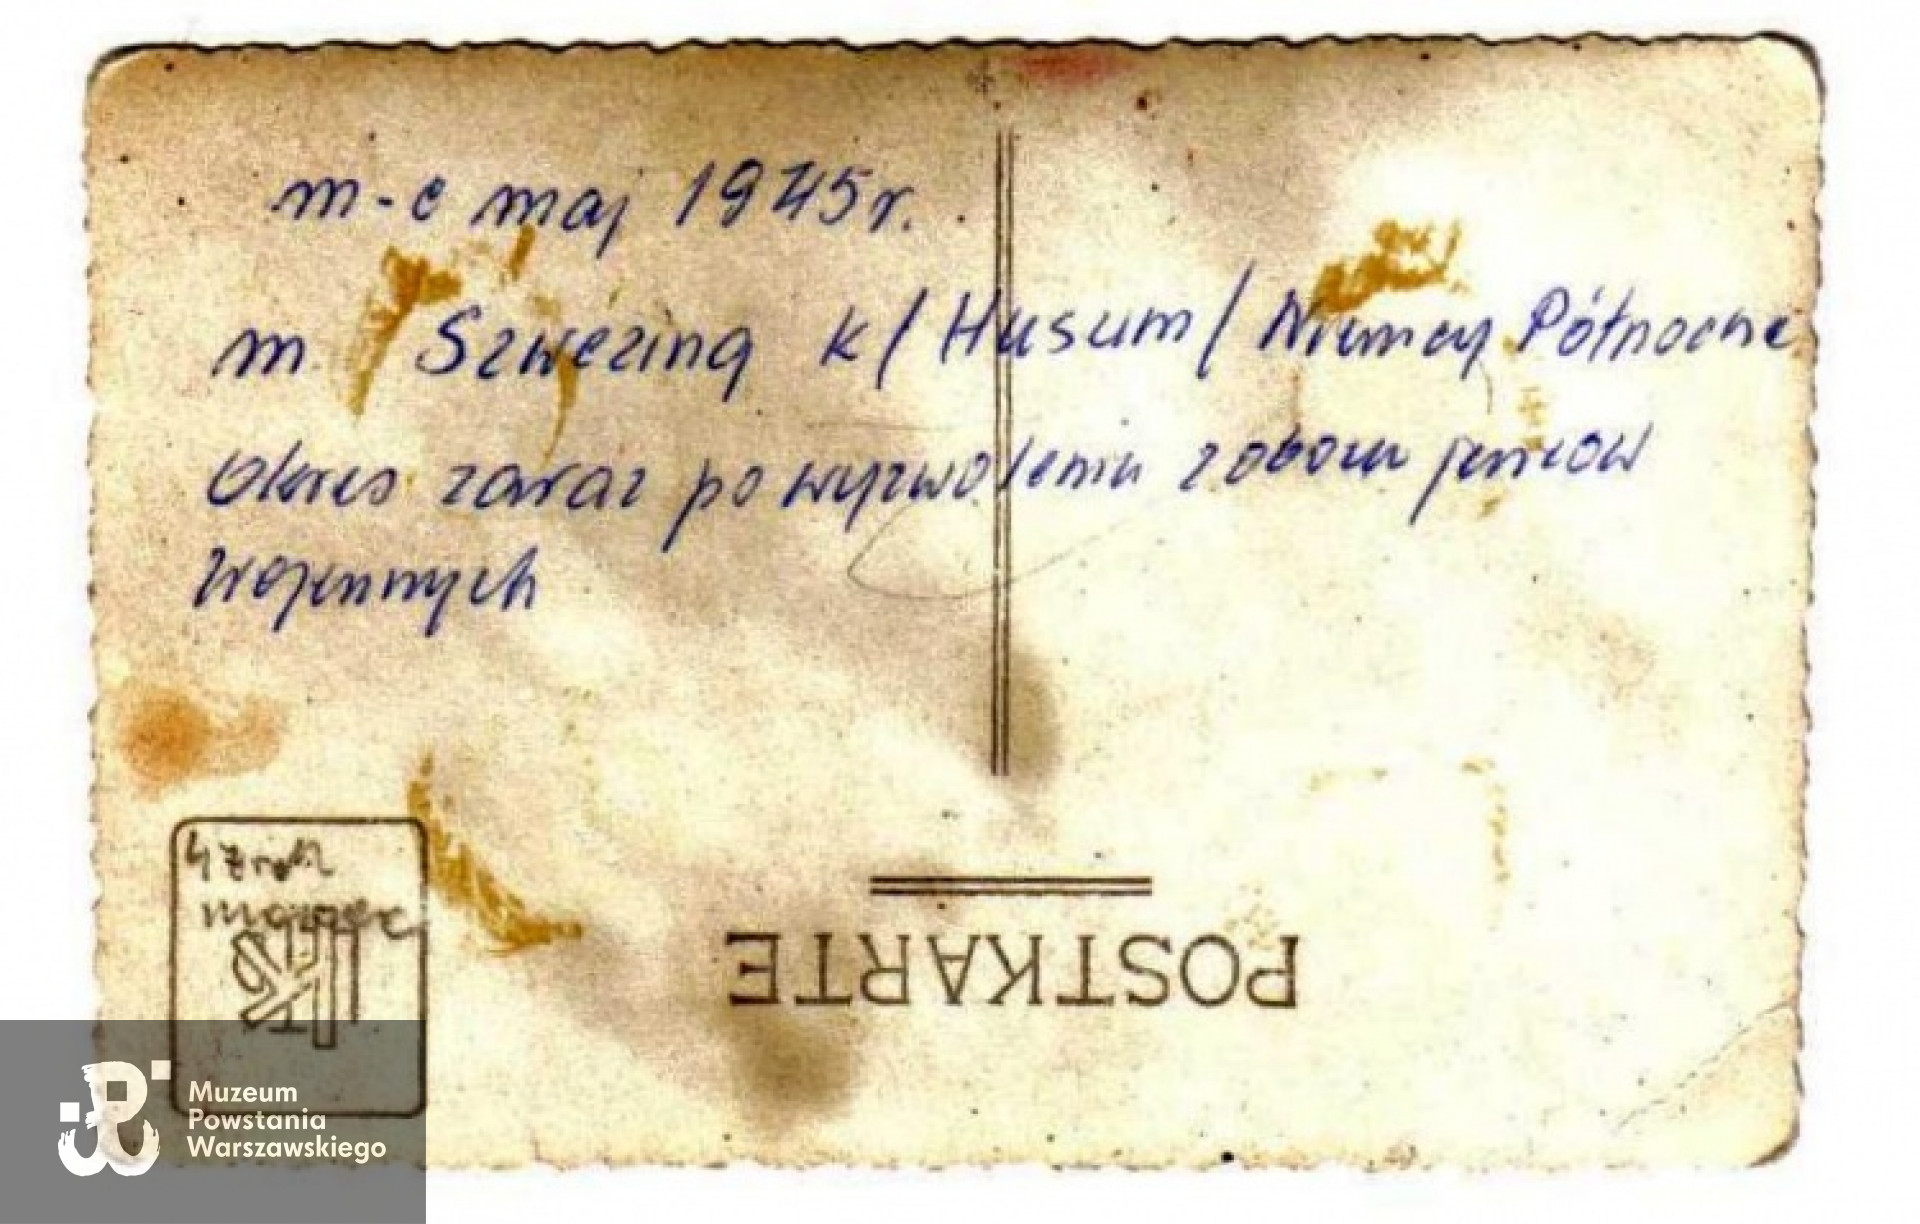 m-c maj 1945r.
m. Szwezing k/Husum/ Niemcy Północne
Okres zaraz po wyzwoleniu z obozu jeńców
wojennych
47 rok
marzec
POSTKARTE
Muzeum
Powstania
Warszawskiego